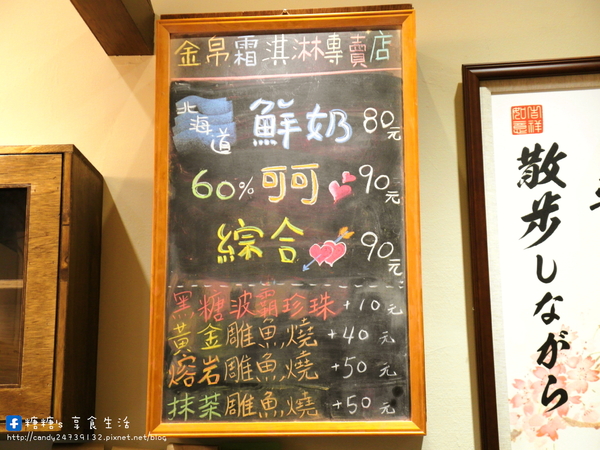 金帛霜淇淋專賣店
北海道 鮮奶 80元
60% 可可 90元
綜合 90元
黑糖波霸珍珠 +10元
黃金雕魚燒 +40元
熔岩雕魚燒 +50元
抹茶雕魚燒 +50元
吉祥如意
散歩しながら
糖糖's 享食生活
http://candy24739132.pixnet.net/blog